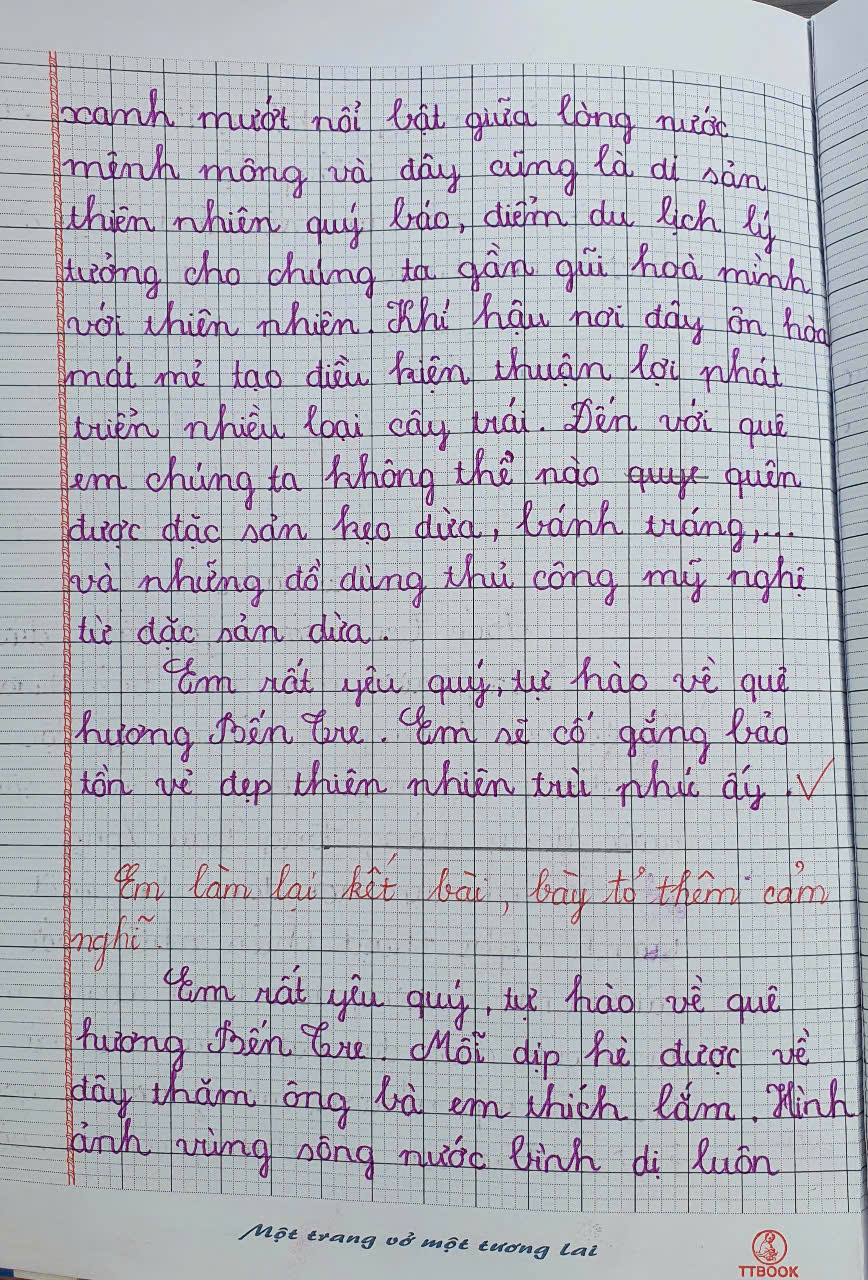 xanh mướt nổi bật giữa lòng nước
mênh mông và đây cũng là di sản
thiên nhiên quý báo, điểm du lịch lý
tưởng cho chúng ta gần gũi hoà mình
với thiên nhiên. Khí hậu nơi đây ôn hòa
mát mẻ tạo điều kiện thuận lợi phát
triển nhiều loại cây trái. Đến với quê
em chúng ta không thể nào quyê quên
được đặc sản kẹo dừa, bánh tráng,...
và những đồ dùng thủ công mỹ nghệ
từ đặc sản dừa.
Em rất yêu quý, tự hào về quê
hương Bến Tre. Em sẽ cố gắng bảo
tồn vẻ đẹp thiên nhiên trù phú ấy.
Em làm lại kết bài, bày tỏ thêm cảm
nghĩ.
Em rất yêu quý, tự hào về quê
hương Bến Tre. Mỗi dịp hè được về
đây thăm ông bà em thích lắm. Hình
ảnh vùng sông nước bình dị luôn
Một trang vở một tương lai
TTBOOK